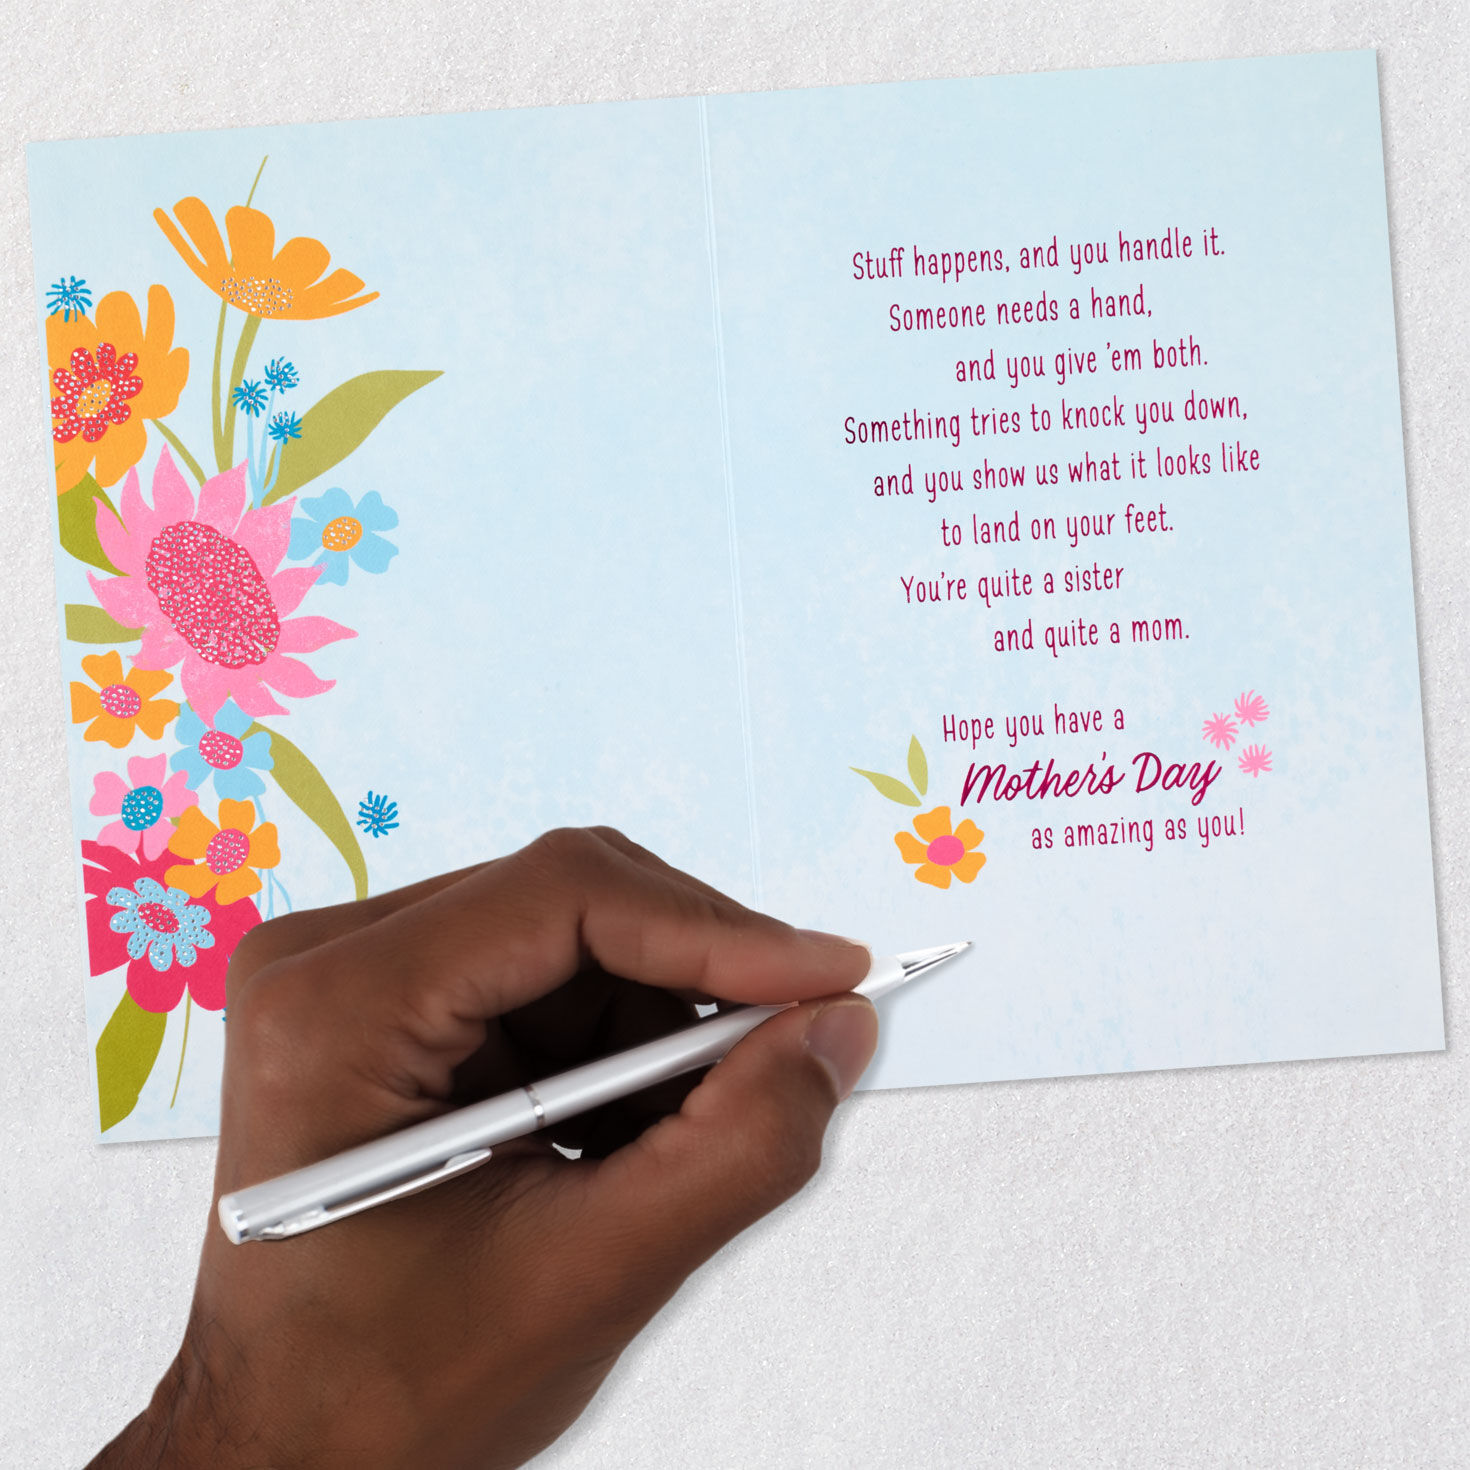 Stuff happens, and you handle it.
Someone needs a hand,
and you give 'em both.
Something tries to knock you down,
and you show us what it looks like
to land on your feet.
You're quite a sister
and quite a mom.
Hope you have a
Mother's Day
as amazing as you!